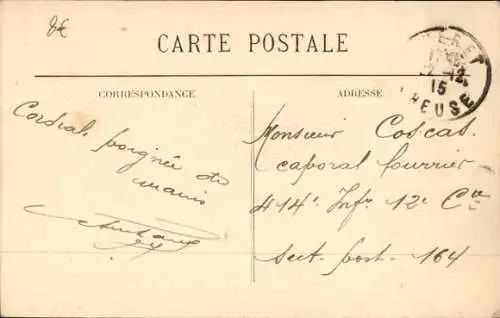 8€
CARTE POSTALE
CORRESPONDANCE
ADRESSE
15
Cordial poignée de
mains
Monsieur Coscas
caporal fourrier
414e Infie 12e Cie
Sect. post. 164